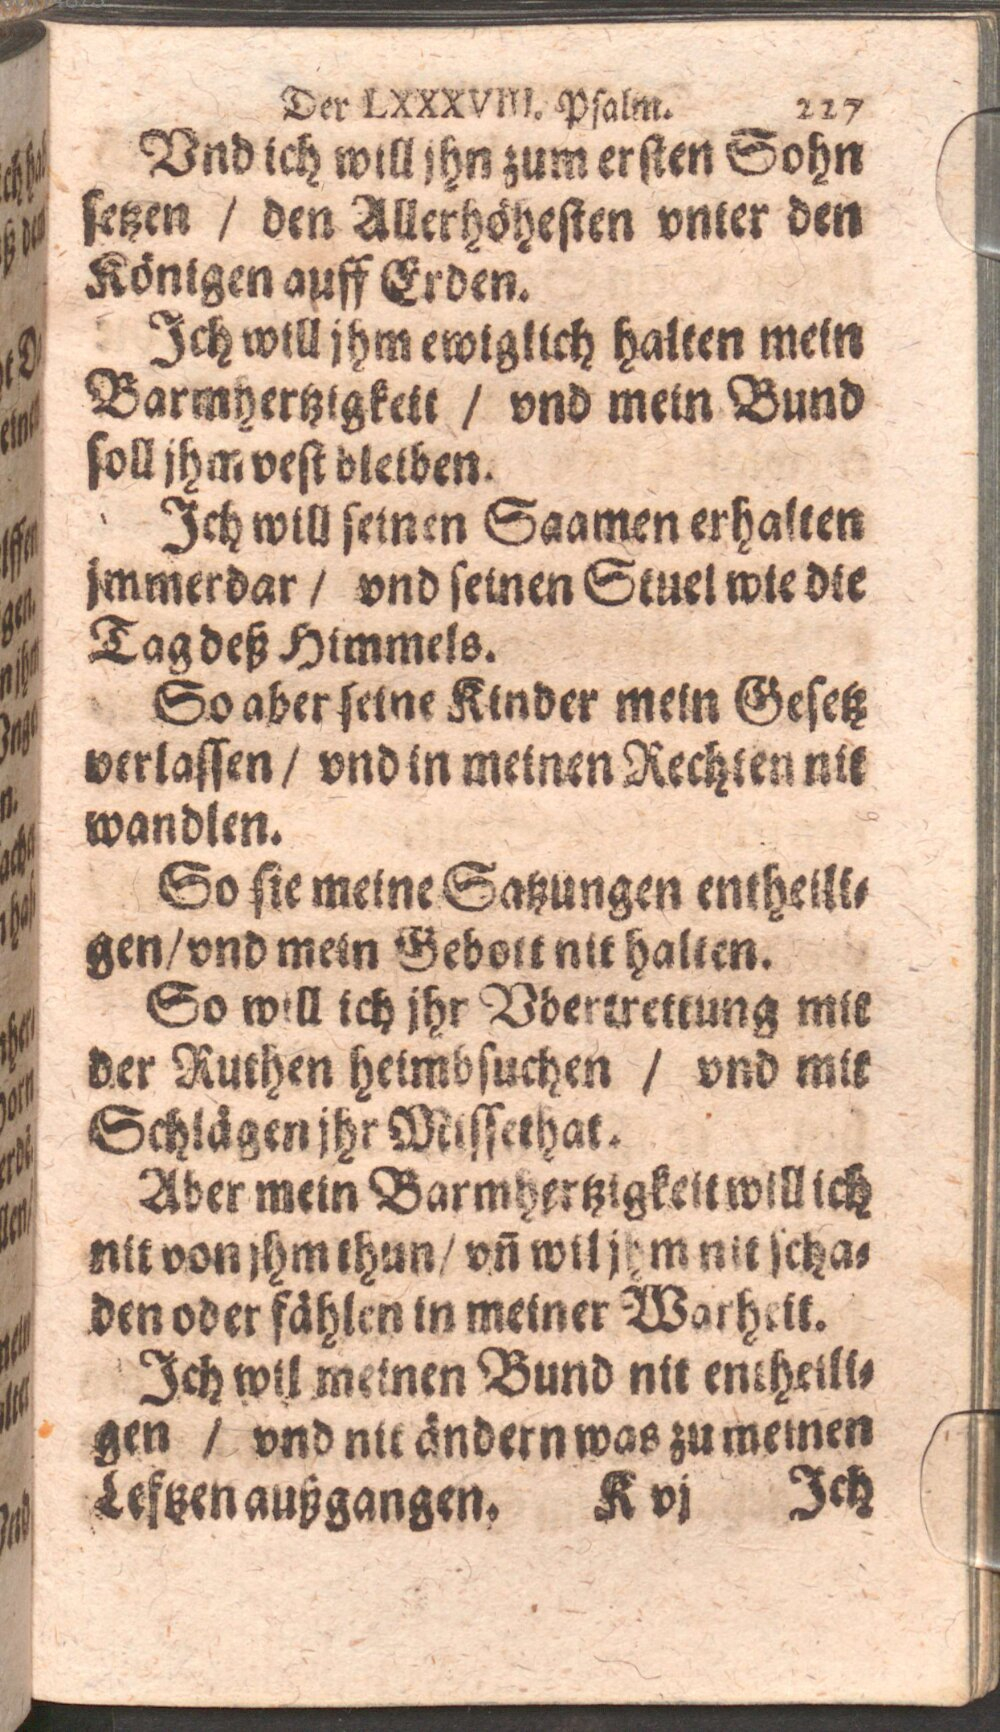 Der LXXXVIII. Psalm. 227
Vnd ich will jhn zum ersten Sohn
setzen / den Allerhöhesten vnter den
Königen auff Erden.
Ich will jhm ewiglich halten mein
Barmhertzigkeit / vnd mein Bund
soll jhm vest bleiben.
Ich will seinen Saamen erhalten
jmmerdar / vnd seinen Stuel wie die
Tag deß Himmels.
So aber seine Kinder mein Gesetz
verlassen / vnd in meinen Rechten nit
wandlen.
So sie meine Satzungen entheili-
gen / vnd mein Gebott nit halten.
So will ich jhr Vbertrettung mit
der Ruthen heimbsuchen / vnd mit
Schlägen jhr Missethat.
Aber mein Barmhertzigkeit will ich
nit von jhm thun / vñ wil jhm nit scha-
den oder fählen in meiner Warheit.
Ich wil meinen Bund nit entheili-
gen / vnd nit ändern was zu meinen
Lefftzen außgangen. K vj Ich